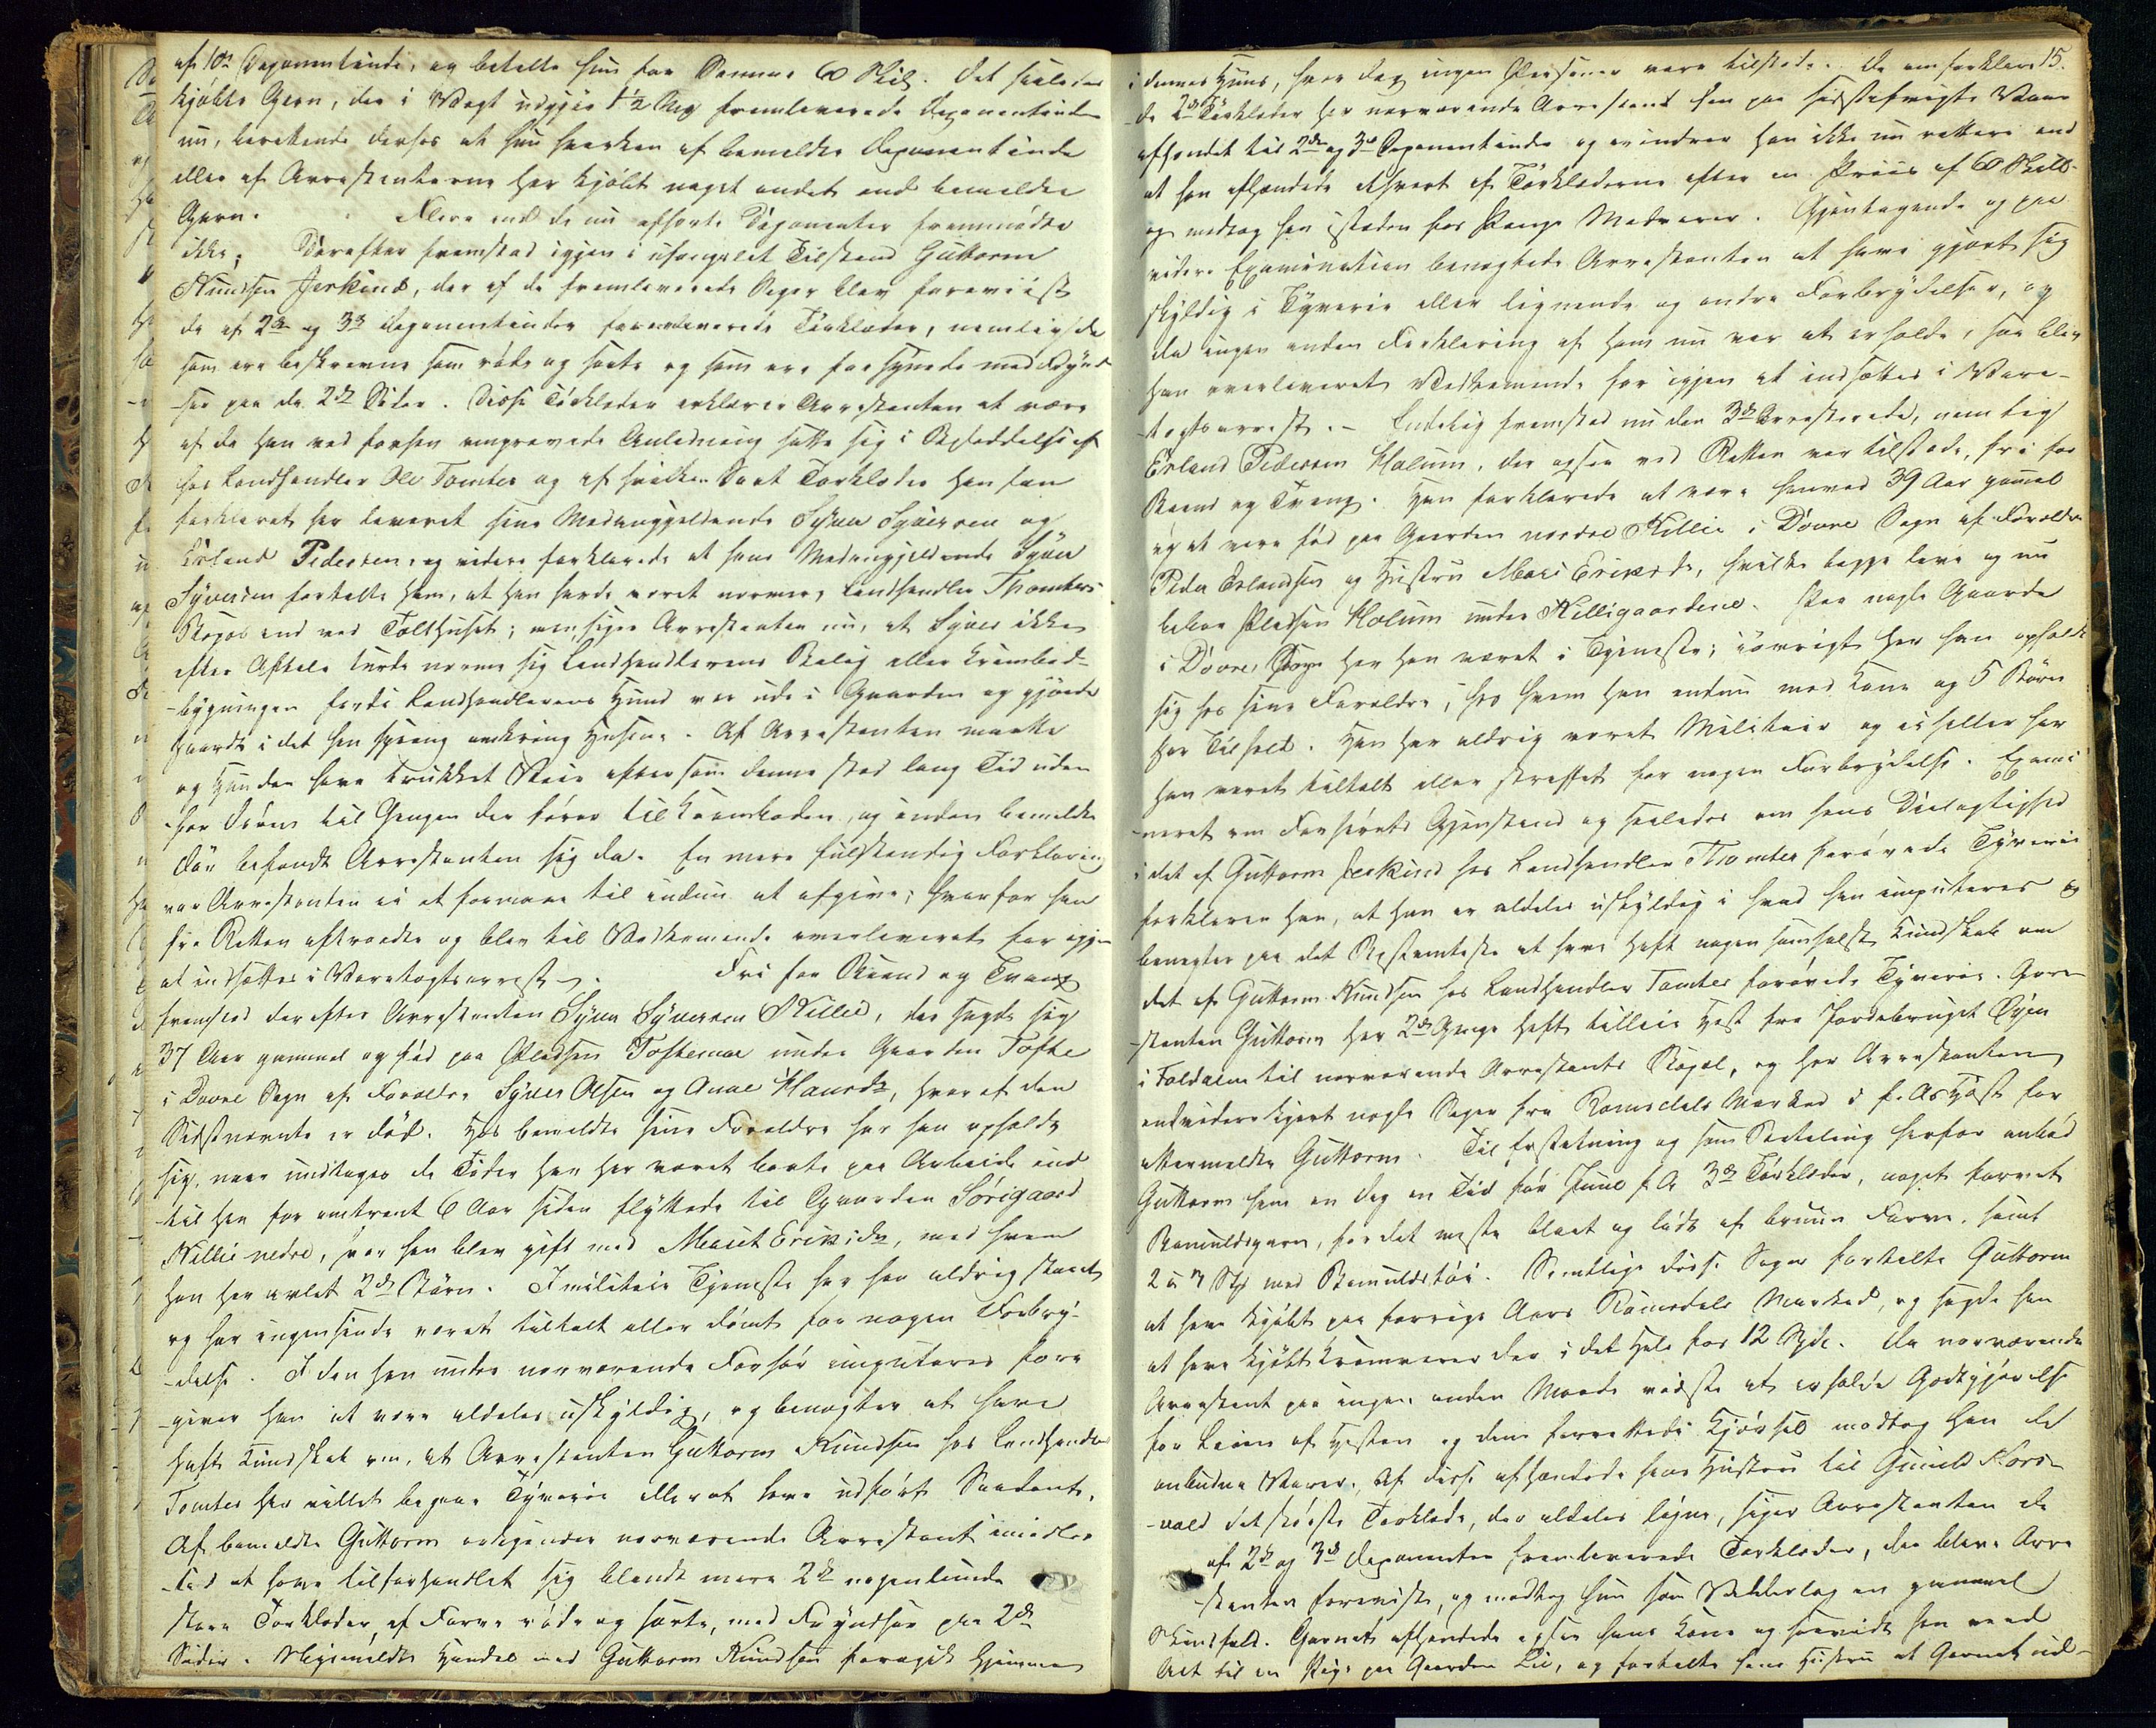 af 10de Deponentinde, og betalte hun for Samme 60 Skil. Det saaledes
kjøbte Garn, der i Vægt udgjør 1½ Mrk fremleverede Deponentinden
nu, berettende derhos at hun hverken af bemeldte Deponentinde
eller af Arrestanterne har kjøbt noget andet end bemeldte
Garn. Flere end de nu afhørte Deponenter fremmødte
ikke; Derefter fremstod igjen i ufængslet Tilstand Guttorm
Knudsen Jerkind, der af de fremleverede Sager blev foreviist
de af 2den og 3de Deponentinder fremleverede Tørklæder, nemlig de
som ere beskrevne som røde og sorte og som ere forsynede med Fryndser
paa de 2de Sider. Disse Tørklæder erklærer Arrestanten at være
af de han ved forhen omprøvede Anledning satte sig i Besiddelse af
hos Landhandler Ole Tomter og af hvilken Sort Tørklæder han som
forklaret har leveret sine Medangjeldende Syver Syversen og
Erland Pedersen, og videre forklarede at hans Medangjeldende Syver
Syversen fortalte ham, at han havde været nærmere Landhandler Thomters
Bopæl end ved Tolthuset; men siger Arrestanten nu, at Syver ikke
efter Aftale turde nærme sig Landhandlerens Bolig eller Krambod-
bygningen fordi Landhandlerens Hund var ude i Gaarden og gjøede
haardt i det han sprang omkring Husene. Af Arrestanten maatte
og Hunden have trukket Veir eftersom denne stod lang Tid uden
for Døren til Gangen der fører til Kramboden, og inden bemeldte
Dør befandt Arrestanten sig da. En mere fuldstændig Forklaring
var Arrestanten ei at formaae til endnu at afgive; hvorfor han
fra Retten aftraadte og blev til Vedkommende overleveret for igjen
at indsættes i Varetægtsarrest. Fri for Baand og Tvang
fremstod derefter Arrestanten Syver Syversen Killie, der sagde sig
37 Aar gammel og fød paa Pladsen Toftemoe under Gaarden Tofte
i Dovre Sogn af Forældre Syver Olsen og Anne Hansdr, hvoraf den
Sidstnævnte er død. Hos bemeldte sine Forældre har han opholdt
sig, naar undtages de Tider han har været borte paa Arbeide ind
til han for omtrent 6 Aar siden flyttede til Gaarden Sørigaard
Killie nedre, hvor han blev gift med Marit Eriksdr, med hvem
han har avlet 2de Børn. I militair Tjeneste har han aldrig staaet
og har ingensinde været tiltalt eller dømt for nogen Forbry-
delse. I den han under nærværende Forhør imputeres fore
giver han at være aldeles uskyldig, og benægter at have
hafte Kundskab om, at Arrestanten Guttorm Knudsen hos Landhandler
Tomter har villet begaae Tyverie eller at have udført Saadant.
Af bemeldte Guttorm vedgjender nærværende Arrestant imidler
tid at have tilforhandlet sig blandt mere 2de nogenlunde
store Tørklæder, af Farve røde og sorte, med Fryndser paa 2de
Sider. Meermeldte Handel med Guttorm Knudsen foregik hjemme
15.
i dennes Huus, hvor dog ingen Personer vare tilstede. De omforklarede
de 2de Tørklæder har nærværende Arrestant han paa sidstafvigte Vaar
afhændet til 2den og 3de Deponentinde og erindrer han ikke nu rettere end
at han afhændede ethvert af Tørklæderne efter en Priis af 60 Skill.
og modtog han istæden for Penge Madvarer. Gjentagende og paa
videre Examination benægtede Arrestanten at have gjort sig
skyldig i Tyverie eller lignende og andre Forbrydelser, og
da ingen anden Forklaring af ham nu var at erholde, saa blev
han overleveret Vedkommende for igjen at indsættes i Vare-
tægtsarrest. - Endelig fremstod nu den 3de Arresterede, nemlig
Erland Pedersen Holum, der ogsaa ved Retten var tilstede, fri for
Baand og Tvang. Han forklarede at være henved 39 Aar gammel
og at være fød paa Gaarden nordre Killie i Dovre Sogn af Forældre
Peder Erlandsen og Hustru Mari Eriksdr, hvilke begge leve og nu
beboe Pladsen Holum under Killigaardene. Paa nogle Gaarde
i Dovre Sogn har han været i Tjeneste; iøvrigt har han opholdt
sig hos sine Forældre, hos hvem han endnu med Kone og 5 Børn
har Tilhold. Han har aldrig været Militair og ei heller har
han været tiltalt eller straffet for nogen Forbrydelse. Exami-
neret om Forhørets Gjenstand og saaledes om hans Deelagtighed
i det af Guttorm Jerkind hos Landhandler Thomter forøvede Tyverie
forklarer han, at han er aldeles uskyldig i hvad han imputeres og
benægter paa det Bestemteste at have haft nogen somhelst Kundskab om
det af Guttorm Knudsen hos Landhandler Tomter forøvede Tyverie. Arre-
stanten Guttorm har 2de Gange haft tilleie Hest fra Jordebruget Øjen
i Foldalen til nærværende Arrestants Bopæl, og har Arrestanten
endvidere kjørt nogle Sager fra Romsdals Marked i f. A. Høst for
oftermeldte Guttorm. Til Erstatning og som Betaling herfor anbød
Guttorm ham en Dag en Tid før Juul f. A. 3de Tørklæder, noget farvet
Bomuldsgarn, for det meste blaat og lidt af bruun Farve, samt
2 a 3 Stk med Bomuldstøi. Samtlige disse Sager fortalte Guttorm
at have kjøbt paa forrige Aars Romsdals Marked, og sagde han
at have kjøbt Kramvarer der i det Hele for 12 Spd. Da nærværende
Arrestant paa ingen anden Maade vidste at erholde Godtgjørelse
for Leien af Hesten og den forrettede Kjørsel modtog han de
anbudne Varer. Af disse afhændede hans Hustru til Gunild Kors-
vold det største Tørklæde, der aldeles ligne, siger Arrestanten de
af 2de og 3de Deponenter fremleverede Tørklæder, der bleve Arre
stanten foreviste, og modtog hun som Vederlag en gammel
Skindfeld. Garnet afhændede ogsaa hans Kone og saavidt han veed
Alt til en Pige paa Gaarden Lie, og fortalte hans Hustru at Garnet ud-